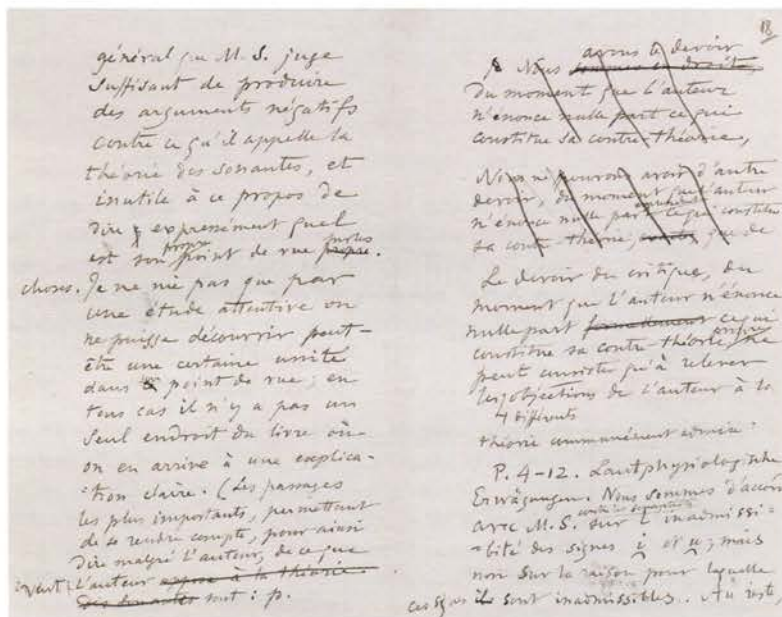 général que M. S. juge
suffisant de produire
des arguments négatifs
contre ce qu'il appelle la
théorie des sonantes, et
inutile à ce propos de
dire expressément quel
est son propre point de vue propre.
choses. Je ne nie pas que par
une étude attentive on
ne puisse découvrir peut-
être une certaine unité
dans le point de vue; en
tous cas il n'y a pas un
seul endroit du livre où
on en arrive à une explica-
tion claire. (Les passages
les plus importants, permettant
de se rendre compte, pour ainsi
dire malgré l'auteur, de ce que
veut l'auteur oppose à la théorie
des sonantes sont : p.
18
avons le devoir
Nous sommes en droit,
du moment que l'auteur
n'énonce nulle part ce qui
constitue sa contre-théorie,
Nous ne pouvons avoir d'autre
devoir, du moment que l'auteur
n'énonce nulle part ce qui constitue
sa contre-théorie, que de
Le devoir du critique, du
moment que l'auteur n'énonce
nulle part formellement ce qui
constitue sa contre-théorie propre, ne
peut consister qu'à relever
les objections de l'auteur à la
4 différents
théorie communément admise :
P. 4-12. Lautphysiologische
Erwägungen. Nous sommes d'accord
avec M. S. sur l'inadmissi-
bilité des signes i̯ et u̯; mais
non sur la raison pour laquelle
ces signes ils sont inadmissibles. Au reste,